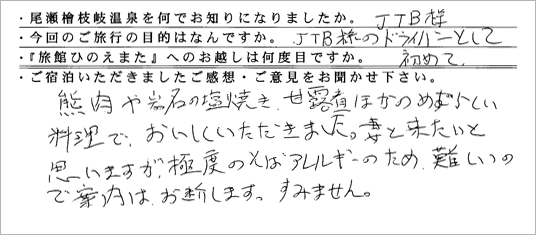 ・尾瀬檜枝岐温泉を何でお知りになりましたか。 JTB様
・今回のご旅行の目的はなんですか。 JTB様のドライバーとして
・『旅館ひのえまた』へのお越しは何度目ですか。 初めて
・ご宿泊いただきましたご感想・ご意見をお聞かせ下さい。
熊肉や岩石の塩焼き、甘露煮ほかのめずらしい
料理で、おいしくいただきました。妻と来たいと
思いますが、極度のそばアレルギーのため、難しいの
で案内は、お断します。すみません。